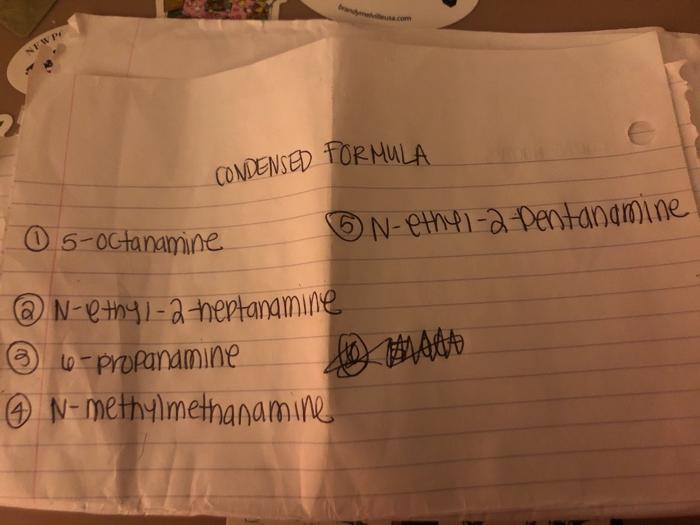 brandymelvilleusa.com
NEWPO
CONDENSED FORMULA
① 5-octanamine
② N-ethyl-2-heptanamine
③ 6-propanamine
④ N-methylmethanamine
⑤ N-ethyl-2-pentanamine